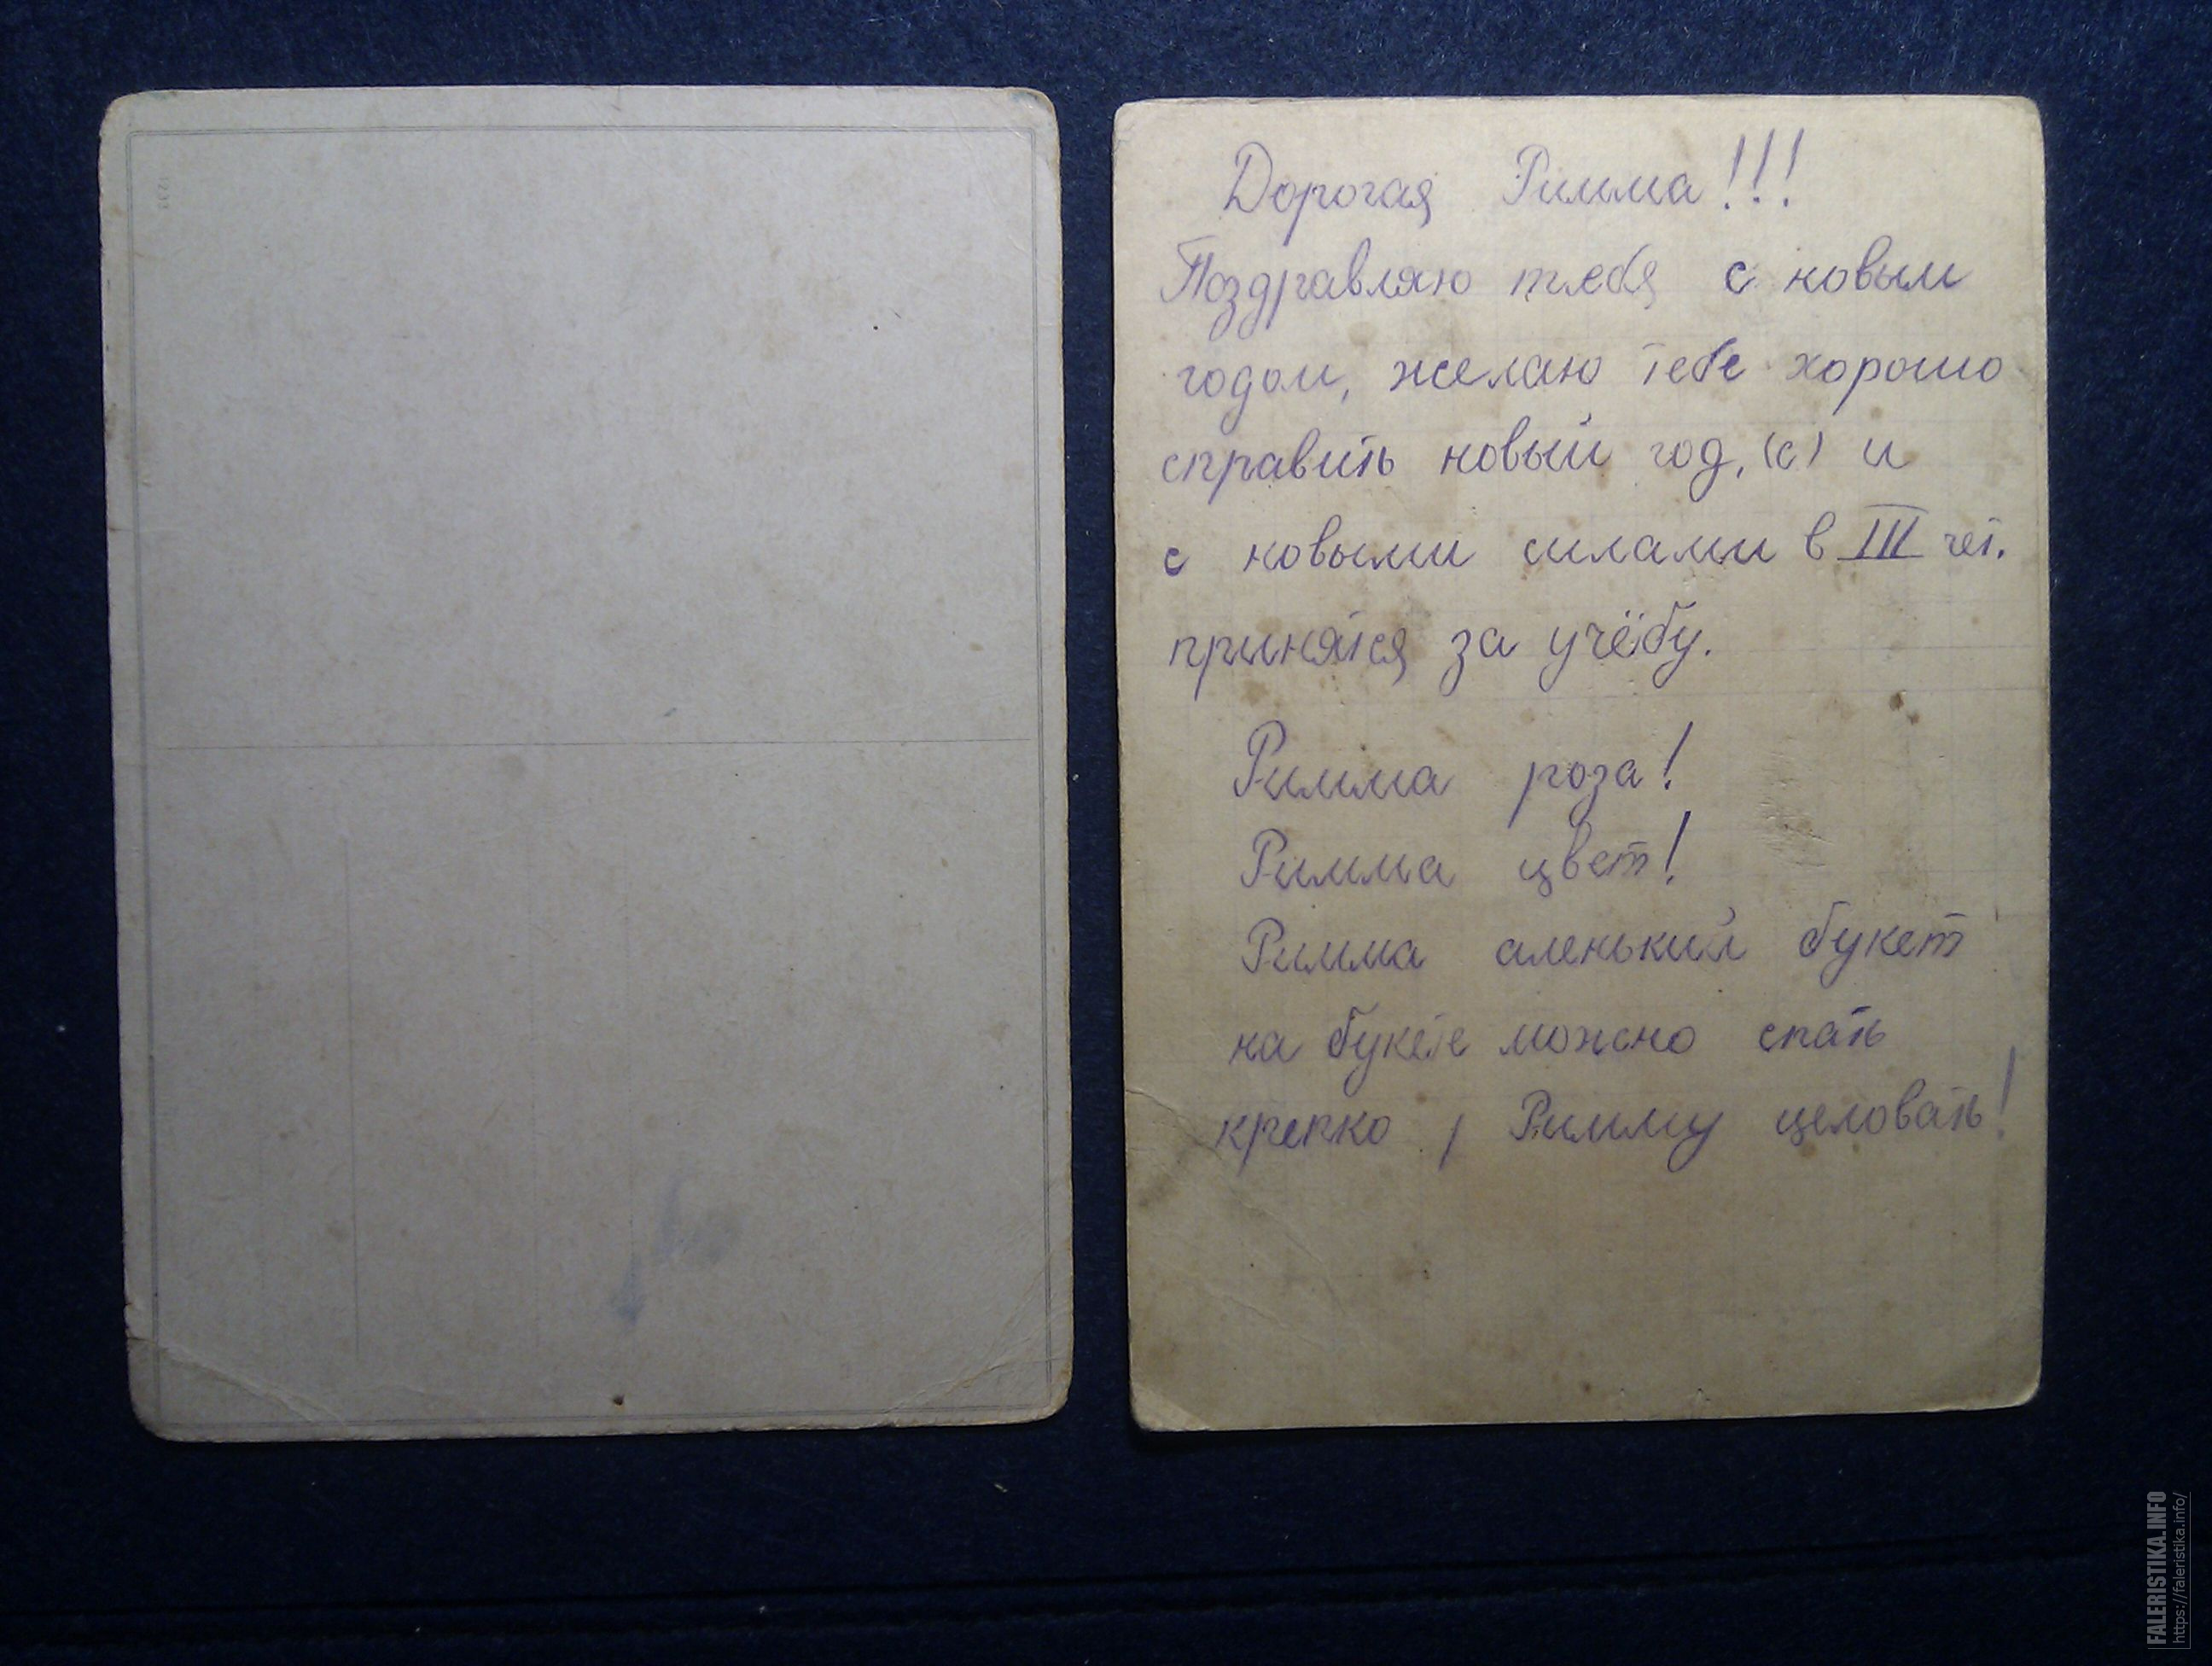 Дорогая Римма!!!
Поздравляю тебя с новым
годом, желаю тебе хорошо
справить новый год, (с) и
с новыми силами в III чет.
принятся за учёбу.
Римма роза!
Римма цвет!
Римма аленький букет
на букете можно спать
крепко, Римму целовать!
FALERISTIKA.INFO
https://faleristika.info/